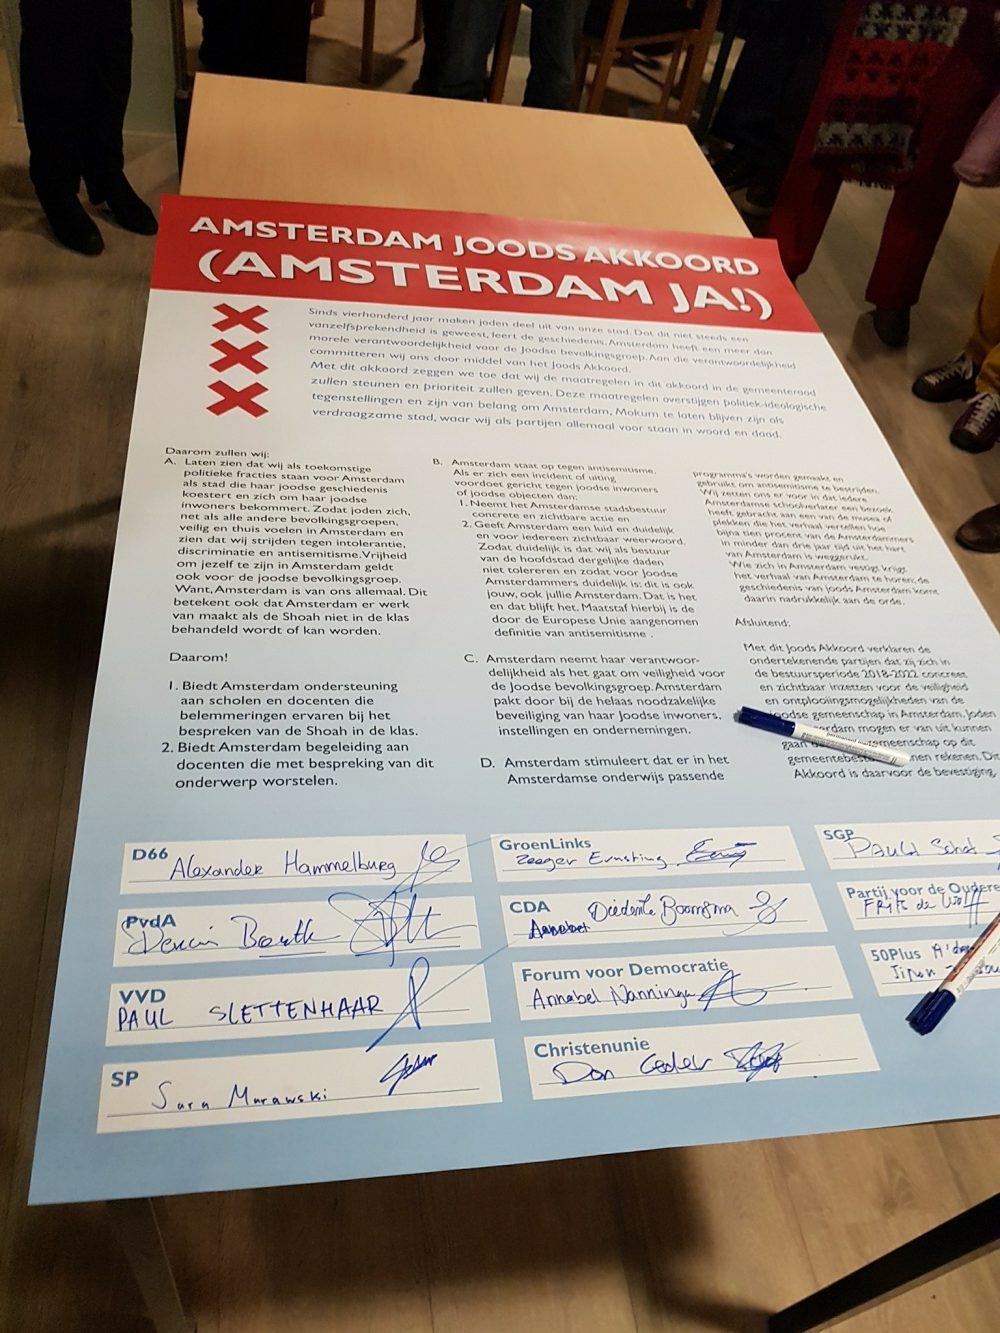 AMSTERDAM JOODS AKKOORD
(AMSTERDAM JA!)
Sinds vierhonderd jaar maken joden deel uit van onze stad. Dat dit niet steeds een
vanzelfsprekendheid is geweest, leert de geschiedenis. Amsterdam heeft een meer dan
morele verantwoordelijkheid voor de Joodse bevolkingsgroep. Aan die verantwoordelijkheid
committeren wij ons door middel van het Joods Akkoord.
Met dit akkoord zeggen we toe dat wij de maatregelen in dit akkoord in de gemeenteraad
zullen steunen en prioriteit zullen geven. Deze maatregelen overstijgen politiek-ideologische
tegenstellingen en zijn van belang om Amsterdam, Mokum te laten blijven zijn als
verdraagzame stad, waar wij als partijen allemaal voor staan in woord en daad.
Daarom zullen wij:
A. Laten zien dat wij als toekomstige
politieke fracties staan voor Amsterdam
als stad die haar joodse geschiedenis
koestert en zich om haar joodse
inwoners bekommert. Zodat joden zich,
net als alle andere bevolkingsgroepen,
veilig en thuis voelen in Amsterdam en
zien dat wij strijden tegen intolerantie,
discriminatie en antisemitisme. Vrijheid
om jezelf te zijn in Amsterdam geldt
ook voor de joodse bevolkingsgroep.
Want, Amsterdam is van ons allemaal. Dit
betekent ook dat Amsterdam er werk
van maakt als de Shoah niet in de klas
behandeld wordt of kan worden.
Daarom!
1. Biedt Amsterdam ondersteuning
aan scholen en docenten die
belemmeringen ervaren bij het
bespreken van de Shoah in de klas.
2. Biedt Amsterdam begeleiding aan
docenten die met bespreking van dit
onderwerp worstelen.
B. Amsterdam staat op tegen antisemitisme.
Als er zich een incident of uiting
voordoet gericht tegen joodse inwoners
of joodse objecten dan:
1. Neemt het Amsterdamse stadsbestuur
concrete en zichtbare actie en
2. Geeft Amsterdam een luid en duidelijk
en voor iedereen zichtbaar weerwoord.
Zodat duidelijk is dat wij als bestuur
van de hoofdstad dergelijke daden
niet tolereren en zodat voor Joodse
Amsterdammers duidelijk is: dit is ook
jouw, ook jullie Amsterdam. Dat is het
en dat blijft het. Maatstaf hierbij is de
door de Europese Unie aangenomen
definitie van antisemitisme .
C. Amsterdam neemt haar verantwoor-
delijkheid als het gaat om veiligheid voor
de Joodse bevolkingsgroep. Amsterdam
pakt door bij de helaas noodzakelijke
beveiliging van haar Joodse inwoners,
instellingen en ondernemingen.
D. Amsterdam stimuleert dat er in het
Amsterdamse onderwijs passende
programma's worden gemaakt en
gebruikt om antisemitisme te bestrijden.
Wij zetten ons er voor in dat iedere
Amsterdamse schoolverlater een bezoek
heeft gebracht aan een van de musea of
plekken die het verhaal vertellen hoe
bijna tien procent van de Amsterdammers
in minder dan drie jaar tijd uit het hart
van Amsterdam is weggerukt.
Wie zich in Amsterdam vestigt krijgt
het verhaal van Amsterdam te horen; de
geschiedenis van joods Amsterdam komt
daarin nadrukkelijk aan de orde.
Afsluitend:
Met dit Joods Akkoord verklaren de
ondertekenende partijen dat zij zich in
de bestuursperiode 2018-2022 concreet
en zichtbaar inzetten voor de veiligheid
en ontplooiingsmogelijkheden van de
joodse gemeenschap in Amsterdam. Joden
mogen er van uit kunnen
gaan gemeenschap op dit
rekenen. Dit
Akkoord is daarvoor de bevestiging.
D66
Alexander Hammelburg
PvdA
Dennis Boutk
VVD
PAUL SLETTENHAAR
SP
Sara Murawski
GroenLinks
Zeeger Ernsting
CDA
Annabel Diederik Boomsma
Forum voor Democratie
Annabel Nanninga
Christenunie
Don Ceder
SGP
PAULA Schot
Partij voor de Oudere
FRITS de Wolff
50Plus A'dam